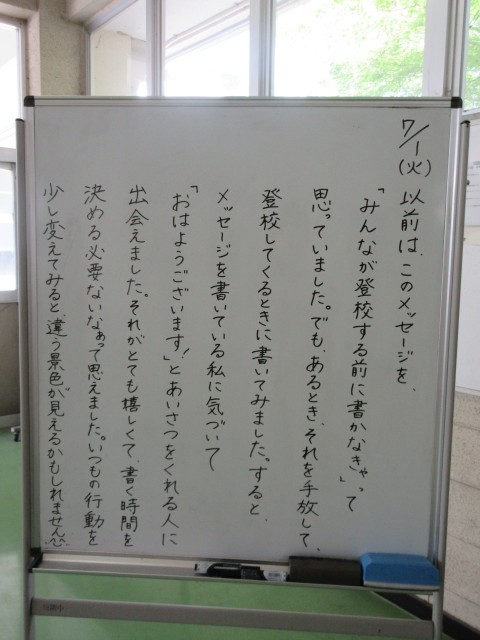 7/1(火) 以前は、このメッセージを、
「みんなが登校する前に書かなきゃ」って
思っていました。でも、あるとき、それを手放して、
登校してくるときに書いてみました。すると、
メッセージを書いている私に気づいて
「おはようございます!」とあいさつをくれる人に
出会えました。それがとても嬉しくて、書く時間を
決める必要ないなぁって思えました。いつもの行動を
少し変えてみると、違う景色が見えるかもしれません